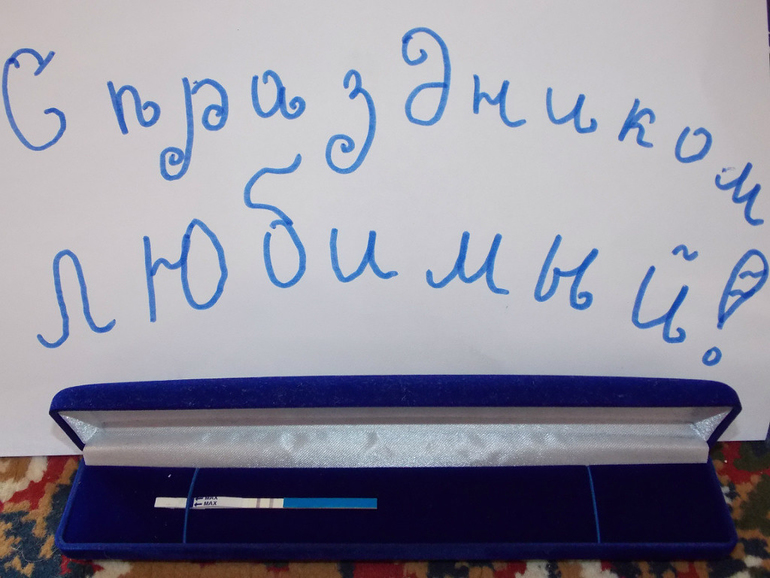 С праздником
любимый!
MAX
MAX